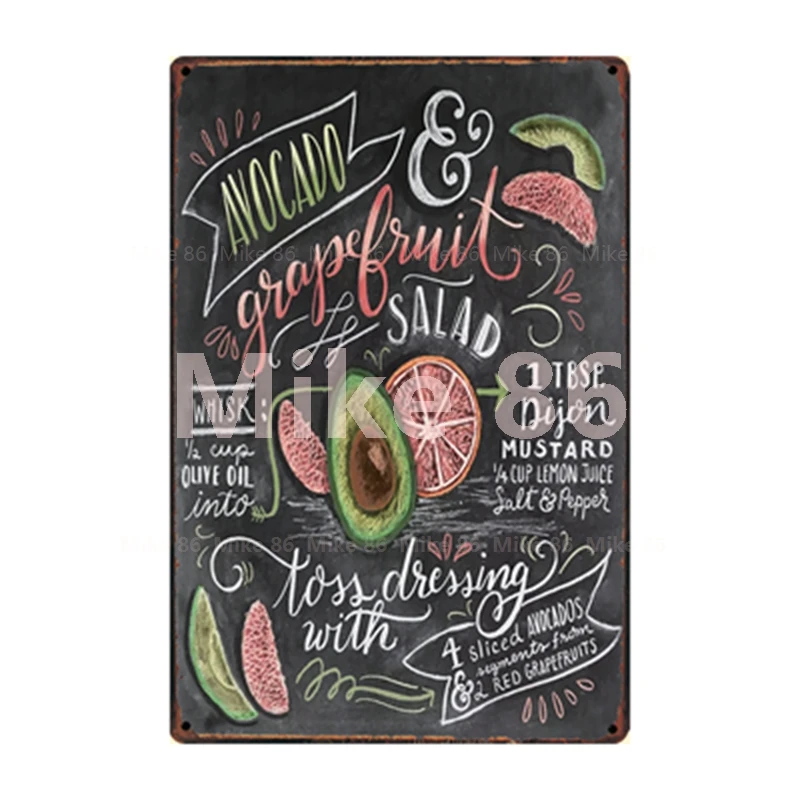 AVOCADO
&
grapefruit
SALAD
WHISK:
½ cup
OLIVE OIL
into
1 TBSP.
Dijon
MUSTARD
¼ CUP LEMON JUICE
Salt & Pepper
toss dressing
with
4 sliced AVOCADOS
& segments from
2 RED GRAPEFRUITS
Mike 86
Mike 86 Mike 86 Mike 86 Mike 86 Mike 86 Mike 86
Mike 86 Mike 86 Mike 86 Mike 86 Mike 86 Mike 86